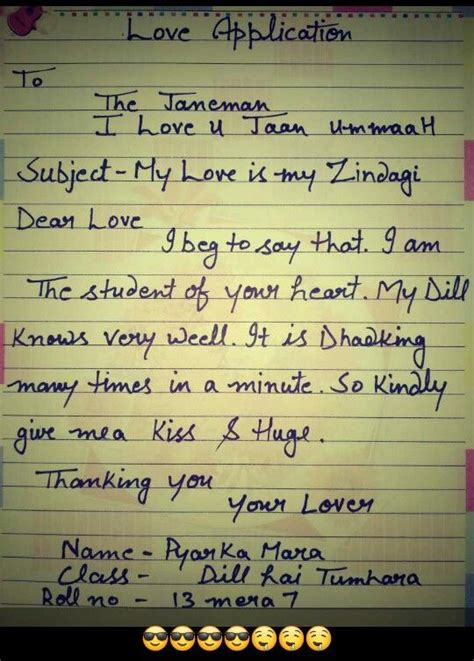 Love Application
To
The Janeman
I Love u Jaan ummaaH
Subject - My Love is my Zindagi
Dear Love
I beg to say that. I am
The student of your heart. My Dill
Knows very weell. It is Dhadking
many times in a minute. So Kindly
give me a Kiss & Huge.
Thanking you
Your Lover
Name - Pyar Ka Mara
Class - Dill hai Tumhara
Roll no - 13 mera 7